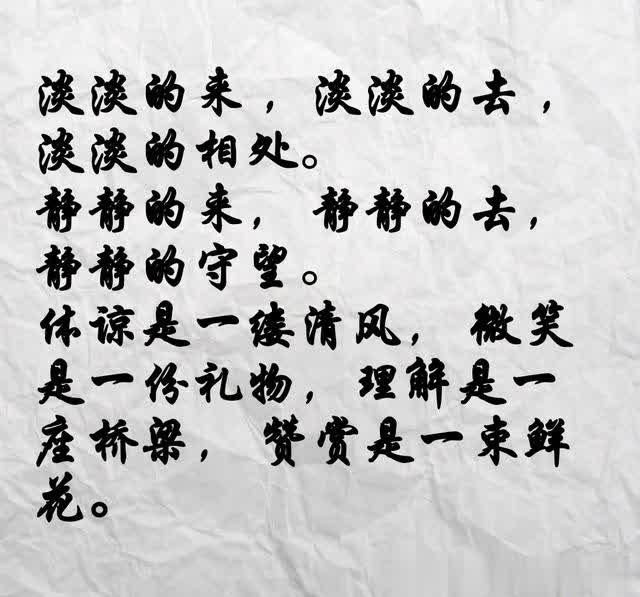 淡淡的来，淡淡的去，
淡淡的相处。
静静的来，静静的去，
静静的守望。
体谅是一缕清风，微笑
是一份礼物，理解是一
座桥梁，赞赏是一束鲜
花。